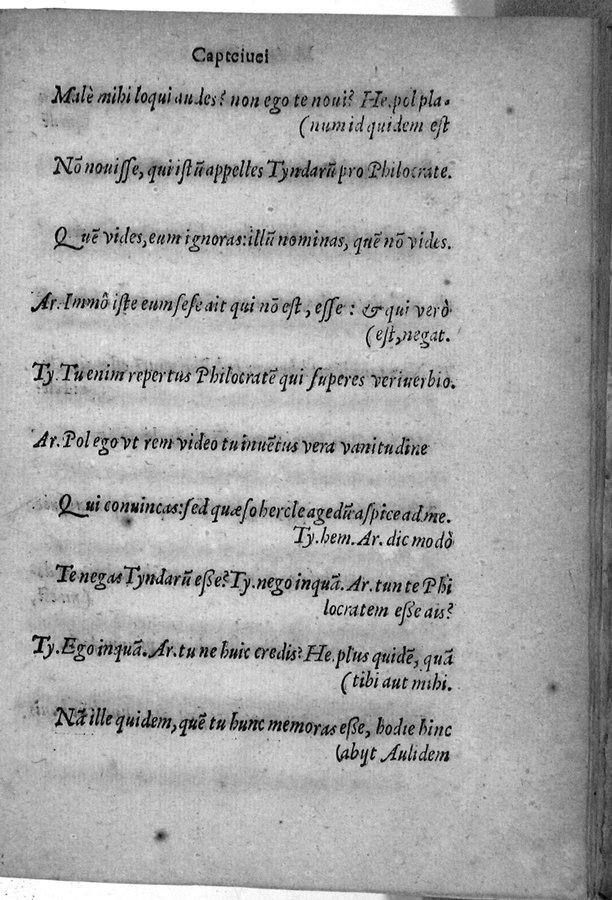 Capteiuei
Malè mihi loqui audes? non ego te noui? He. pol pla-
(num id quidem est
Nõ nouisse, qui istũ appelles Tyndarũ pro Philocrate.
Quẽ vides, eum ignoras: illũ nominas, quẽ nõ vides.
Ar. Immò iste eum sese ait qui nõ est, esse : & qui verò
(est, negat.
Ty. Tu enim repertus Philocratẽ qui superes veriuerbio.
Ar. Pol ego vt rem video tu inuẽtus vera vanitudine
Qui conuincas: sed quæso hercle agedũ aspice ad me.
Ty. hem. Ar. dic modò
Te negas Tyndarũ eße? Ty. nego inquã. Ar. tun te Phi
locratem eße ais?
Ty. Ego inquã. Ar. tu ne huic credis? He. plus quidẽ, quã
(tibi aut mihi.
Nã ille quidem, quẽ tu hunc memoras eße, hodie hinc
(abijt Aulidem